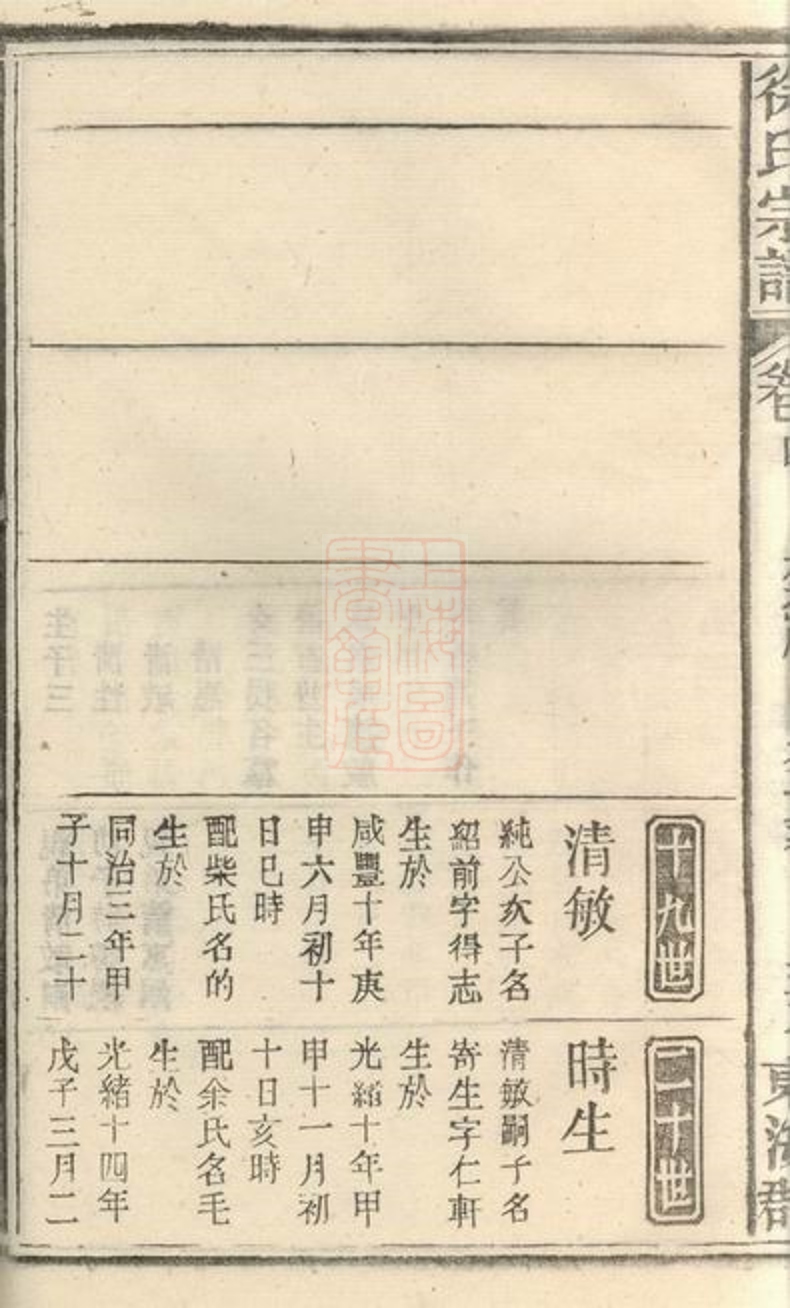 徐氏宗譜
卷
東海郡
十九世
清敏
純公次子名
紹前字得志
生於
咸豐十年庚
申六月初十
日巳時
配柴氏名的
生於
同治三年甲
子十月二十
二十世
時生
清敏嗣子名
寄生字仁軒
生於
光緒十年甲
申十一月初
十日亥時
配余氏名毛
生於
光緒十四年
戊子三月二
上海圖
書館藏